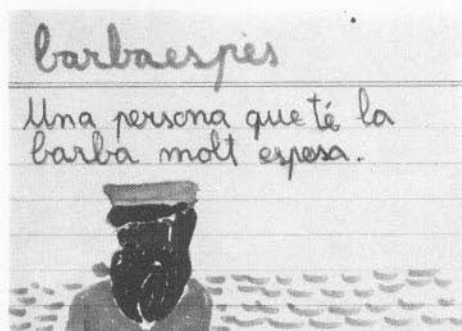 barbaespès
Una persona que té la
barba molt espesa.